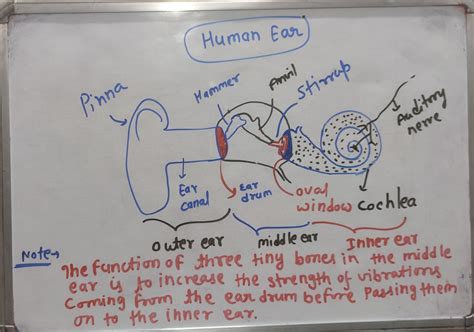 Human Ear
Pinna
Hammer
Anvil
Stirrup
Auditory
nerve
Ear
canal
Ear
drum
oval
window
Cochlea
outer ear
middle ear
Inner ear
Note→
The function of three tiny bones in the middle
ear is to increase the strength of vibrations
Coming from the ear drum before Passing them
on to the inner ear.